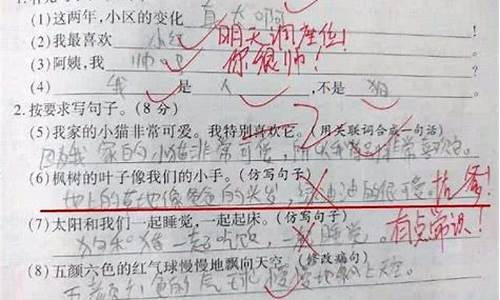 (1)这两年,小区的变化 真大啊
(2)我最喜欢 小红 明天调座位!
(3)阿姨,我 帅吧 你很帅!
(4) 我 是 人 ,不是 狗
2.按要求写句子。(8 分)
(5)我家的小猫非常可爱。我特别喜欢它。(用关联词合成一句话)
因为我家的小猫非常可爱,所以我 非常喜欢它。
(6)枫树的叶子像我们的小手。(仿写句子)
地上的草地像爸爸的头发, 油油的很可爱。
(7)太阳和我们一起睡觉,一起起床。(仿写句子)
狗和猪一起吃饭,一起睡觉。 有点常识!
(8)五颜六色的红气球慢慢地飘向天空。(修改病句)
五颜六色的气球慢慢地飘上天空。